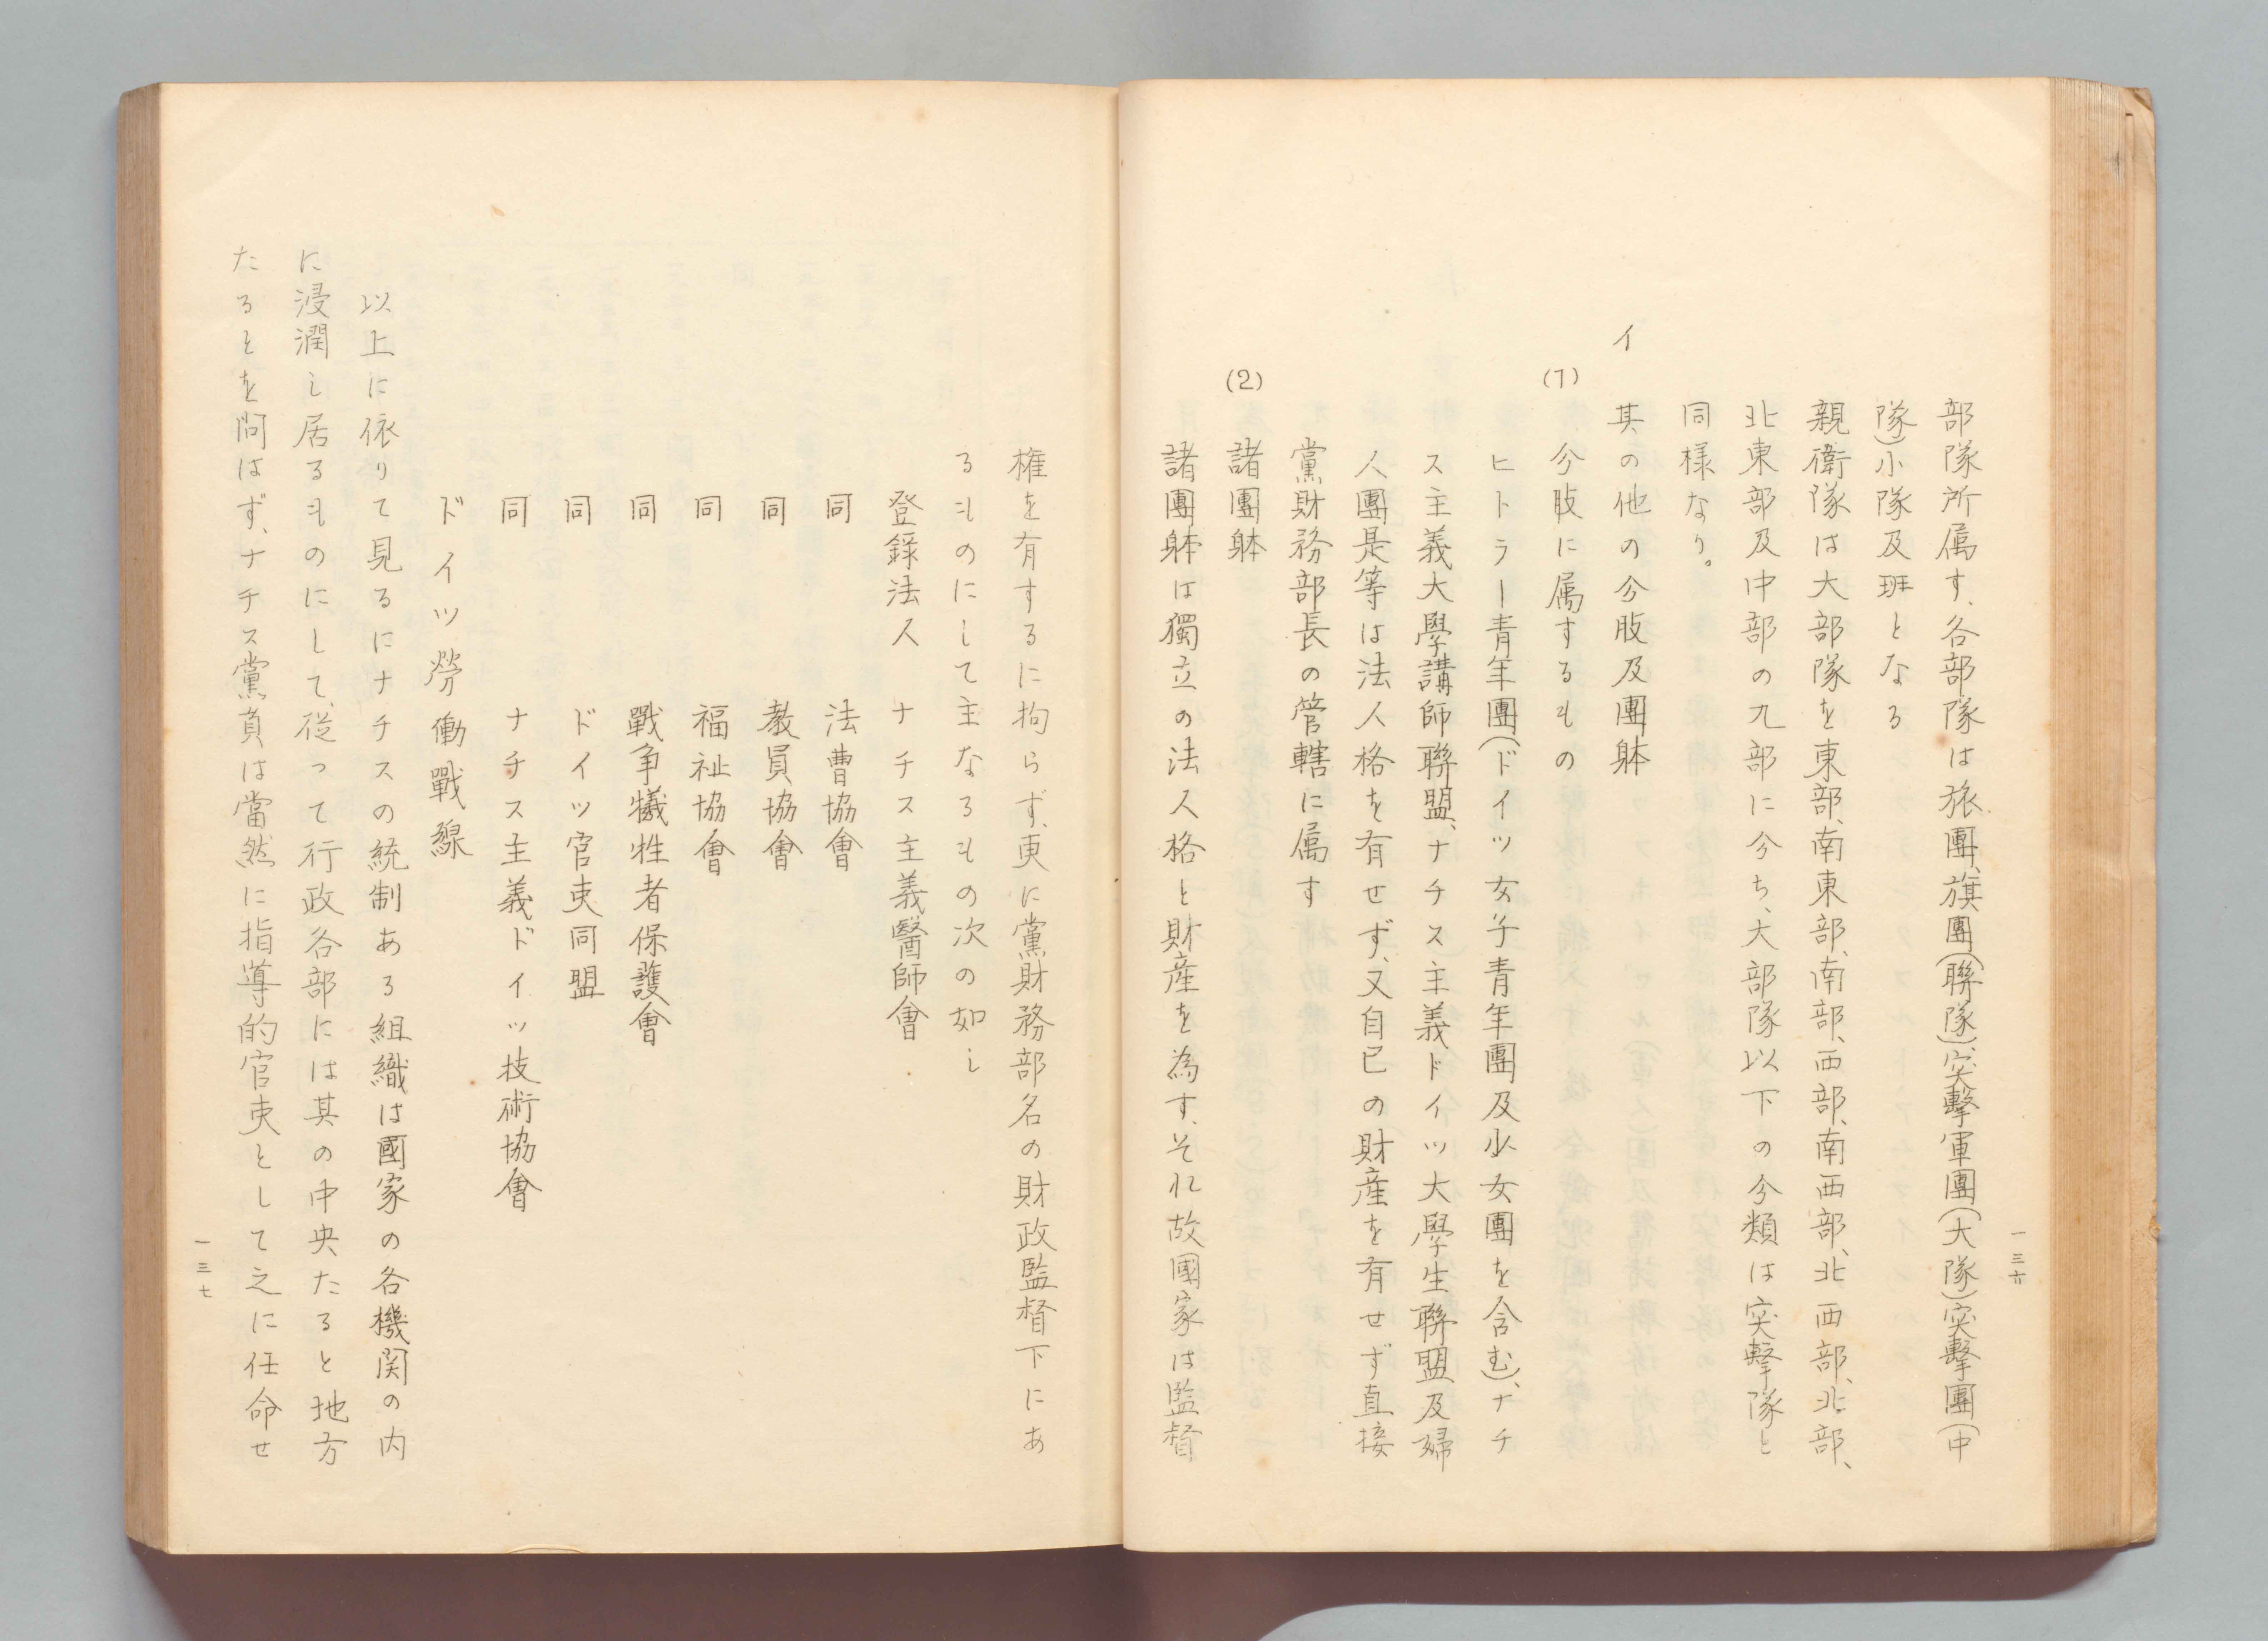 部隊所属す、各部隊は旅團、旗團(聯隊)、突擊軍團(大隊)突擊團(中
隊)小隊及班となる
親衛隊は大部隊を東部、南東部、南部、西部、南西部、北西部、北部、
北東部及中部の九部に分ち、大部隊以下の分類は突擊隊と
同様なり。
イ 其の他の分肢及團躰
(1) 分肢に属するもの
ヒトラー青年團(ドイツ女子青年團及少女團を含む)、ナチ
ス主義大學講師聯盟、ナチス主義ドイツ大學生聯盟及婦
人團是等は法人格を有せず、又自己の財産を有せず直接
黨財務部長の管轄に属す
(2) 諸團躰
諸團躰は獨立の法人格と財産を為す、それ故國家は監督
一三六
権を有するに拘らず、更に黨財務部名の財政監督下にあ
るものにして主なるもの次の如し
登錄法人 ナチス主義醫師會
同 法曹協會
同 教員協會
同 福祉協會
同 戰争犠牲者保護會
同 ドイツ官吏同盟
同 ナチス主義ドイツ技術協會
ドイツ勞働戰線
以上に依りて見るにナチスの統制ある組織は國家の各機関の内
に浸潤し居るものにして、従って行政各部には其の中央たると地方
たるとを問はず、ナチス黨員は當然に指導的官吏として之に任命せ
一三七